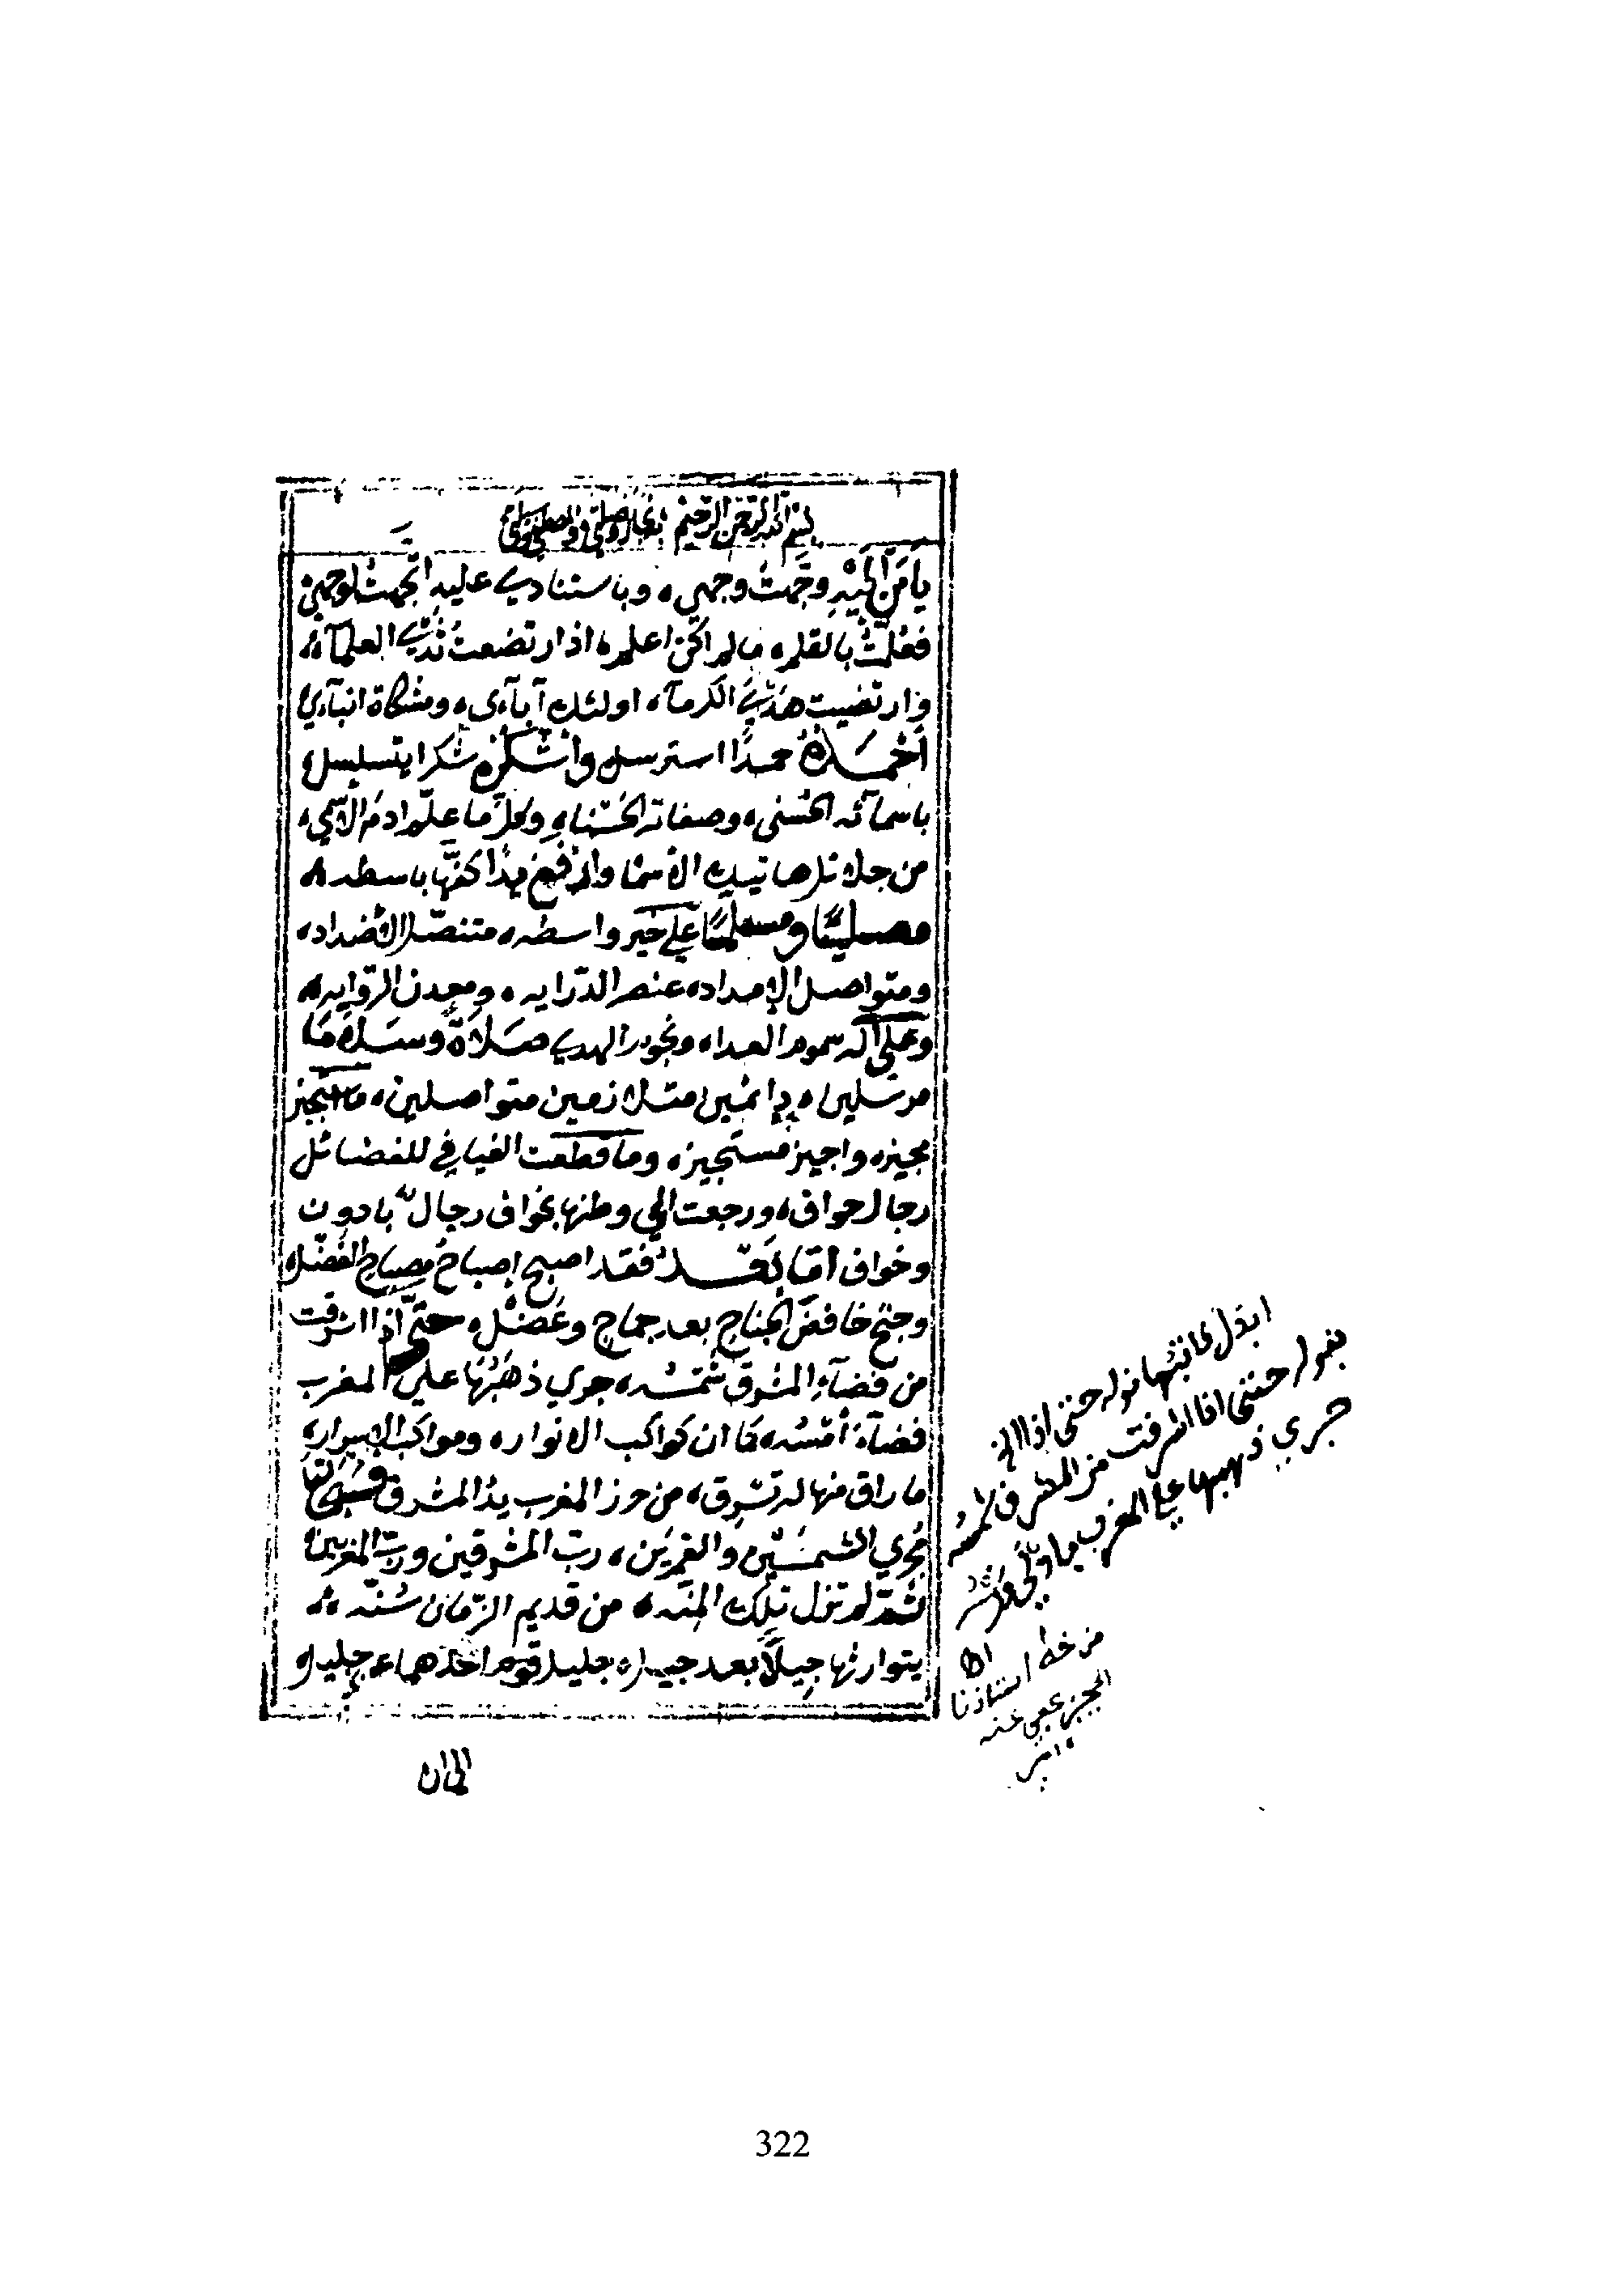 بسم الله الرحمن الرحيم
يا من إليه وجهت وجهي، وباستنادي عليه اتجهت لوجهتي
فقلت بالقلم، ما لم اكن اعلم، اذ ارتضعت ثدي العلمآء،
وارتضيت هدي الكرمآ، اولئك آبآءى، ومشكاة انبآءي
أحمده حمدًا استرسل وأشكره شكرا يتسلسل،
باسمآئه الحسنى، وصفاته الحسناء، وكل ما علم ادم الاسمي،
من جلاتلها تيك الأسما وارفع يدًا كفها باسطه،
مصليًا ومسلمًا على خير واسطه، متنصل الأضداد،
ومتواصل الإمداد، عنصر الدرايه، ومعدن الروايه،
وعلى آله سموم العدا، ونجوم الهدي صلاةً وسلاما
مرسلين، دائمين متلازمين متواصلين، ما استجيز
مجيز، واجيز مستجيز، وما قطعت الفيافي للفضائل
رجال حواف، ورجعت الي وطنها بخوافى رجال بادون
وخواف أما بعد فقد اصبح إصباح مصباح الفضل،
وجنح خافض الجناح بعد جماح وعضل، حتى اذا اشرقت
من فضآء المشرق شمسه، جري ذهبها على المغرب
فضآء أمسه، كما ان كواكب الانوار، ومواكب الاسرار،
ما راق منها لم تشرق، من حرز المغرب يد المشرق
مجري الشمسين والقمرين، رب المشرقين ورب المغربين
ثم لم تزل تلك المنه، من قديم الزمان سنه،
يتوارثها جيلاً بعد جيل، جليل قوم اخذها عن جليل،
الى ان
ابدل كاتبها قوله حتى اذا الخ
بقوله حتى اذا اشرقت من المشرق شمسه
جري ذهبها على المغرب بما
اه
من خط استاذنا
المجيز عفي عنه
322